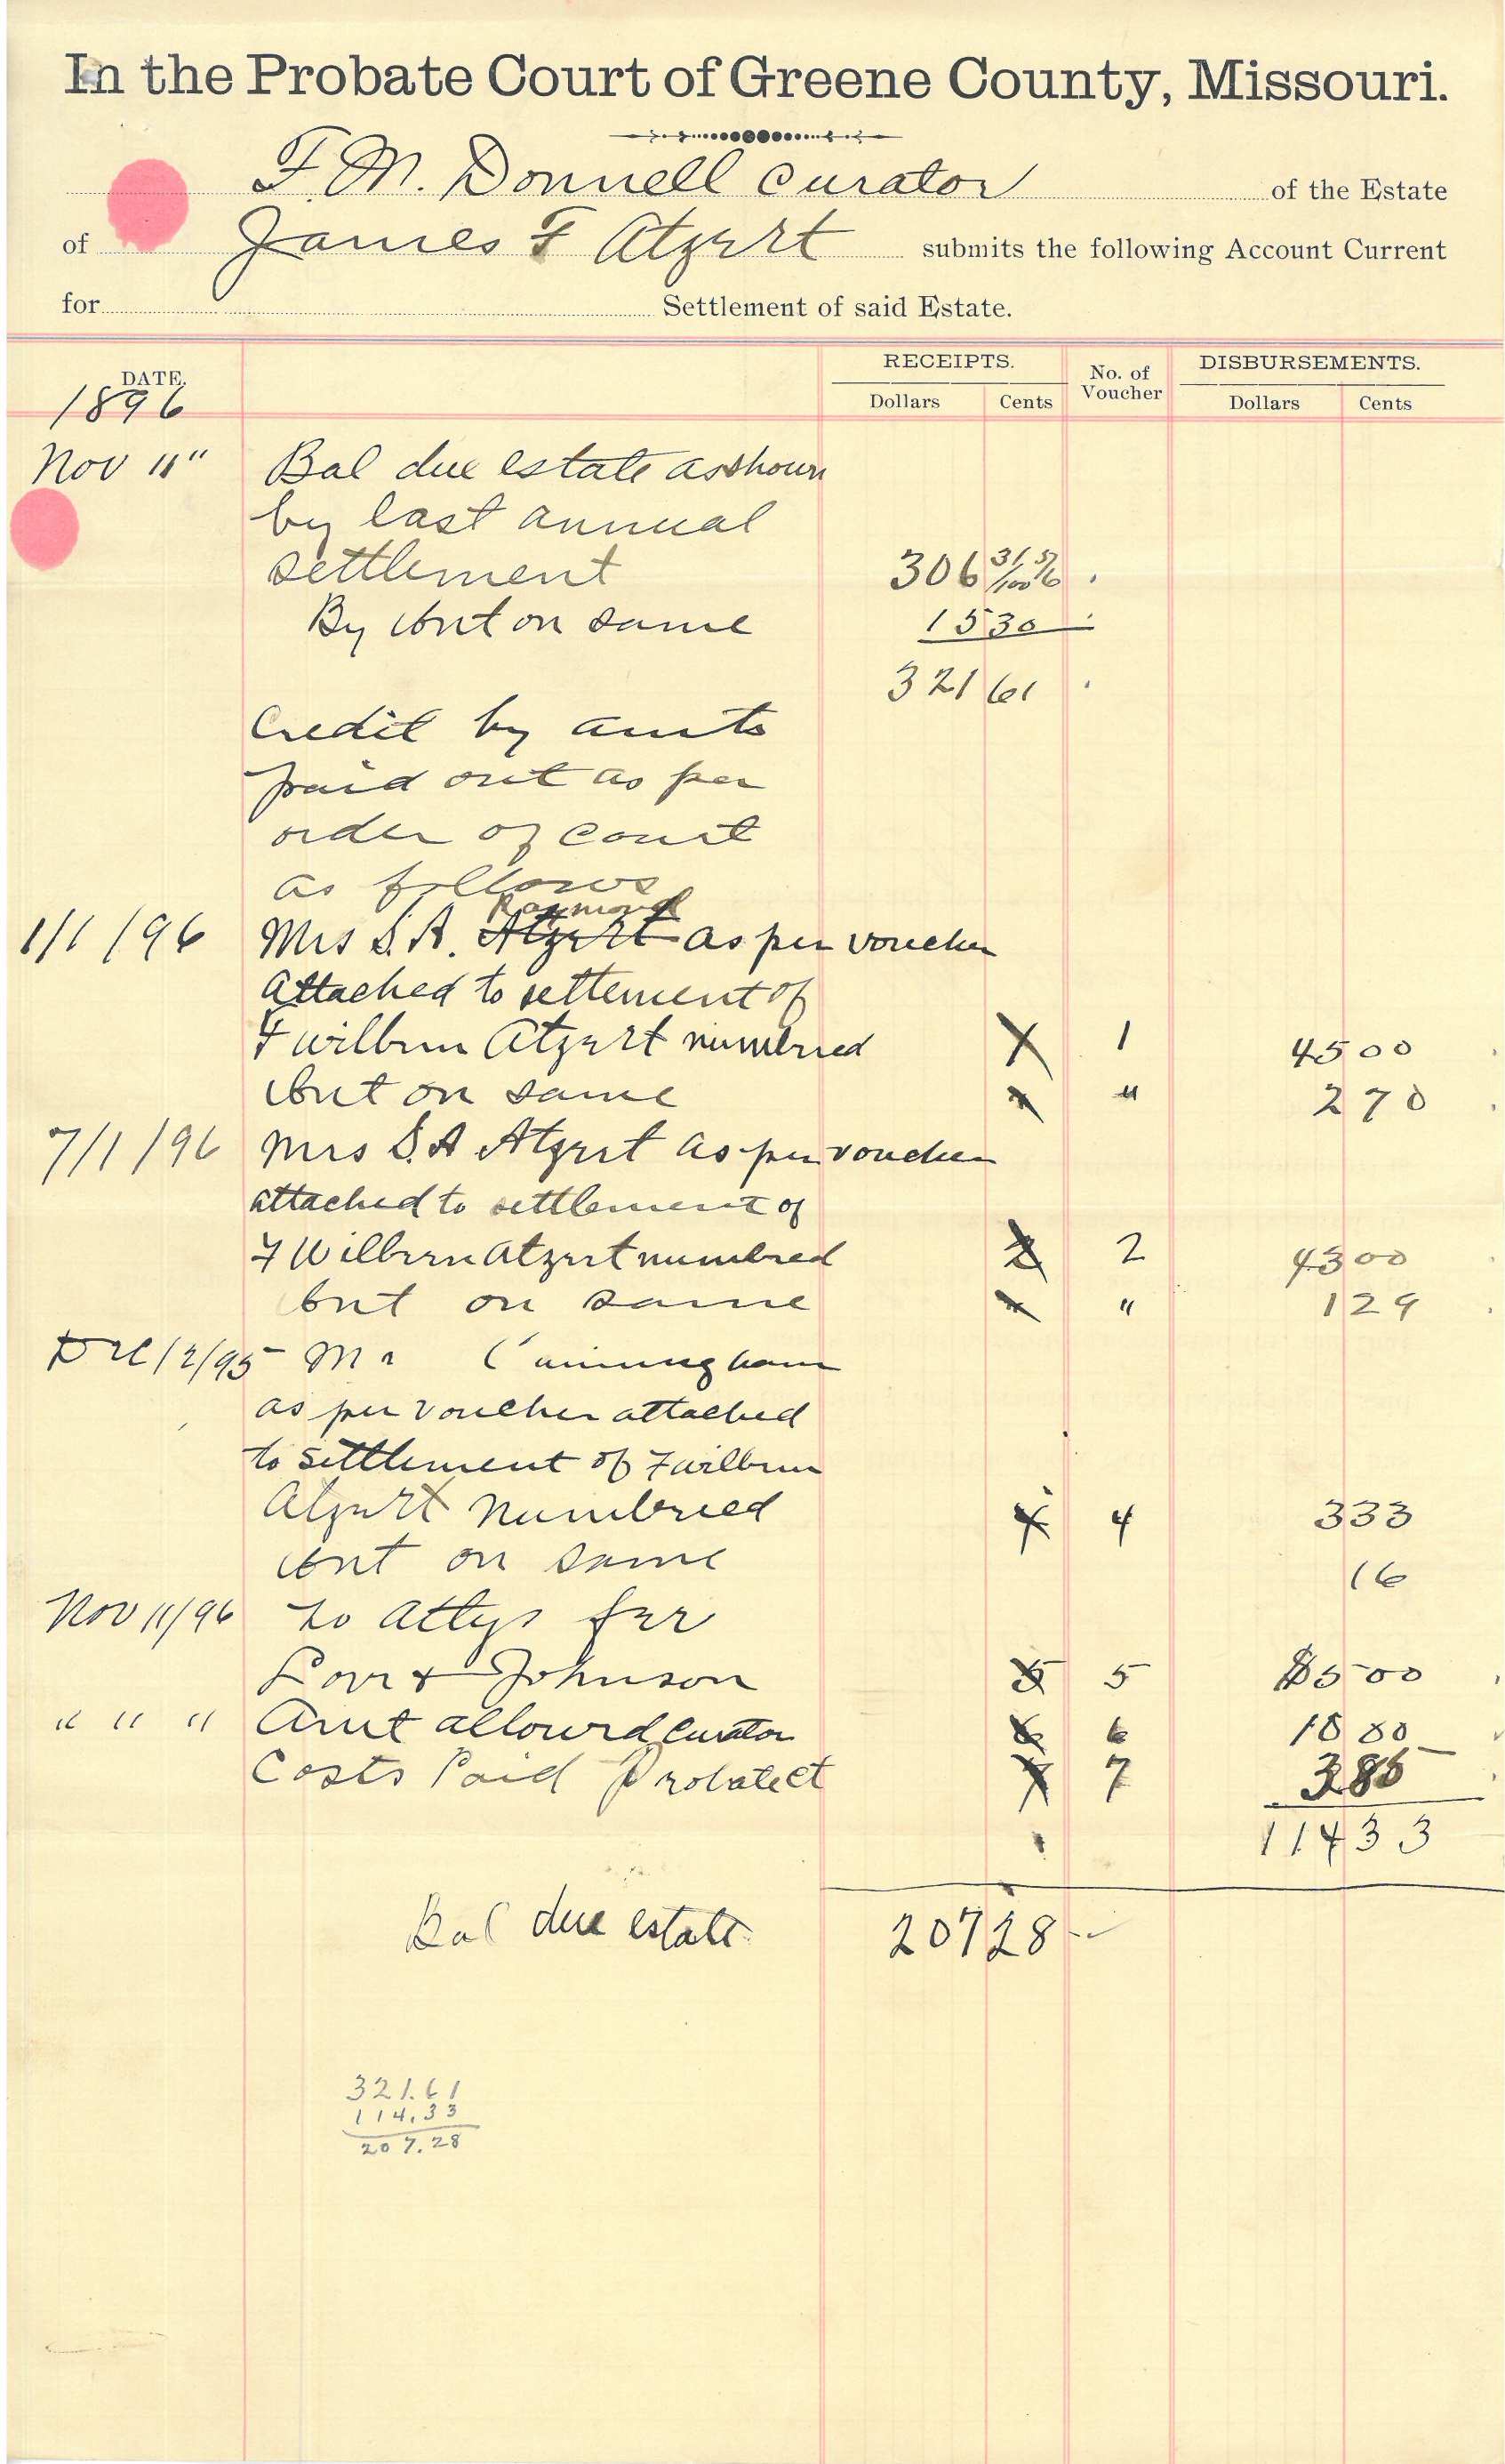 In the Probate Court of Greene County, Missouri.
F. M. Donnell Curator of the Estate
of James F Atzert submits the following Account Current
for Settlement of said Estate.
DATE. RECEIPTS. No. of Voucher DISBURSEMENTS.
Dollars Cents Dollars Cents
1896
Nov 11" Bal due estate as shown
by last annual
settlement 306 31/100 5/6
By Int on same 15 30
321 61
Credit by amts
paid out as per
order of Court
as follows
Raymond
1/1/96 Mrs S. A. Atzert as per voucher
attached to settlement of
F Wilburn Atzert numbred 1 45 00
Int on same " 2 70
7/1/96 Mrs S. A Atzert as per voucher
attached to settlement of
F Wilburn Atzert numbred 2 2 43 00
Int on same " 1 29
Dec 12/95 Mr Cunningham
as per voucher attached
to settlement of F Wilburn
Atzert Numbried 4 4 3 33
Int on same 16
Nov 11/96 to Attys fee
& Johnson 5 5 $5 00
" " " Amt allowed Curator 6 6 10 00
Costs Paid Probate Ct 7 7 3 85
114 33
Bal due estate 207 28
321.61
114.33
207.28